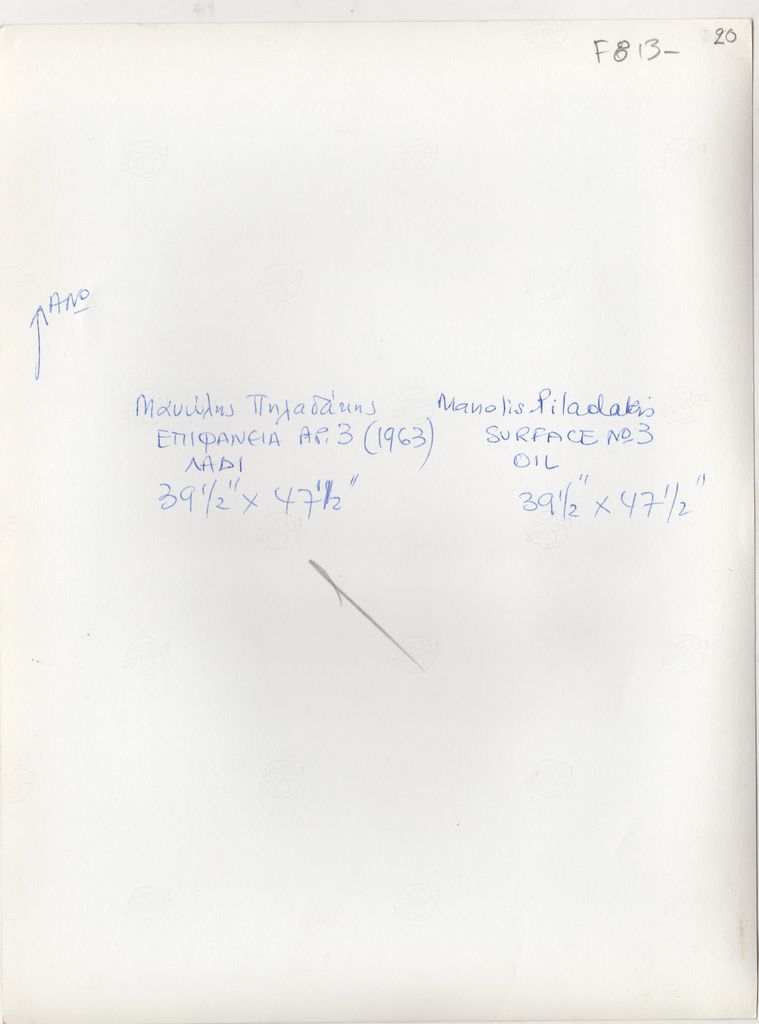 20
F813-
ΑΝΩ
Μανώλης Πηλαδάκης
ΕΠΙΦΑΝΕΙΑ ΑΡ. 3 (1963)
ΛΑΔΙ
39 1/2" x 47 1/2"
Manolis Piladakis
SURFACE No 3
OIL
39 1/2" x 47 1/2"